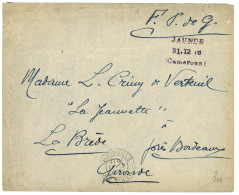 F. P. de G.
JAUNDE
31.12 16
(Cameroon)
Madame L. de Verteuil
"La Jeannette"
à
La Brède près Bordeaux
Gironde